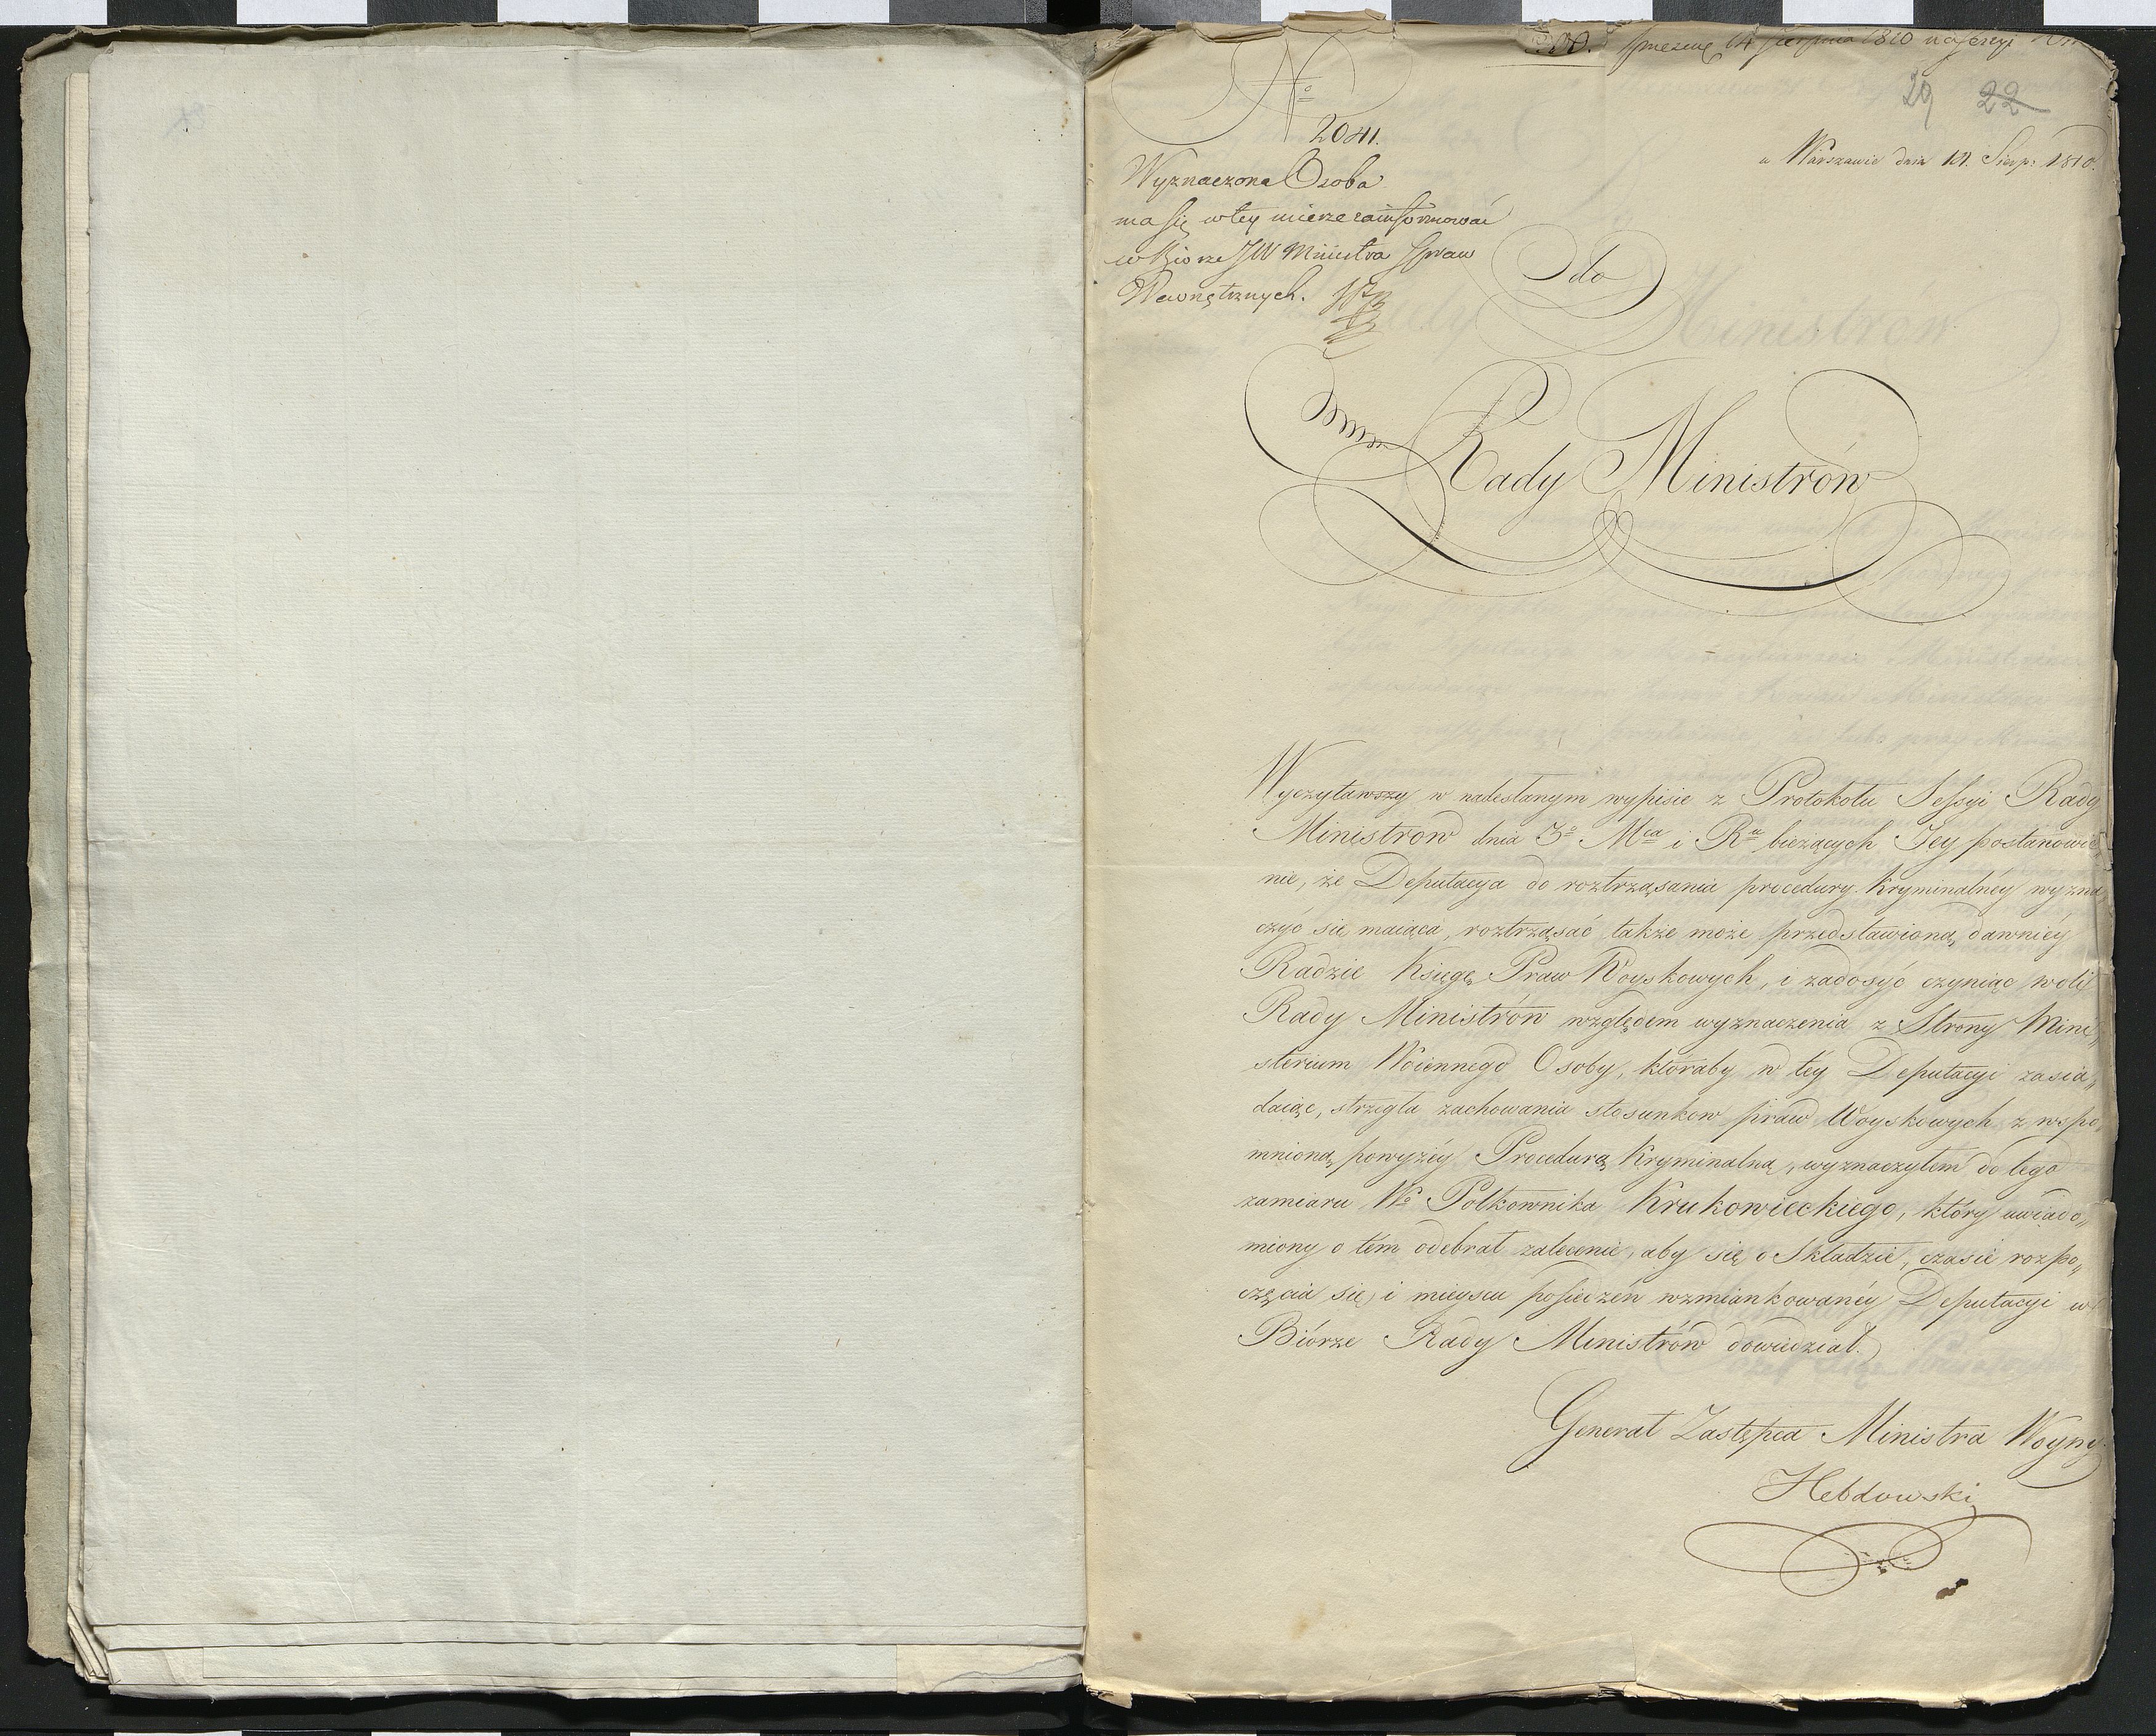 14 sierpnia 1810
29 22
No
2041.
w Warszawie dnia 11. Sierp: 1810.
Wyznaczona Osoba
ma się w tey mierze zainformować
w Biorze JW Ministra Spraw
Wewnętrznych.
do
Rady Ministrów
Wyczytawszy w nadesłanym wypisie z Protokołu Sessyi Rady
Ministrów dnia 3o Mca i Ru bieżących Jey postanowie„
nie, że Deputacya do roztrząsania procedury Kryminalnéy wyzna„
czyć się maiąca, roztrząsać także może przedstawioną dawniéy
Radzie Księgę Praw Woyskowych, i zadosyć czyniąc woli
Rady Ministrów względem wyznaczenia z Strony Mini„
sterium Woiennego Osoby, któraby w téy Deputacyi zasia„
daiąc, strzegła zachowania stosunkow praw Woyskowych z wspo„
mnioną powyżéy Procedurą Kryminalną, wyznaczyłem do tego
zamiaru Wo Półkownika Krukowieckiego, który uwiado„
miony o tém odebrał zalecenie, aby się o Składzie, czasie rozpo„
częcia się i mieyscu posiedzeń wzmiankowanéy Deputacyi w
Biórze Rady Ministrów dowiedział.
Generał Zastępca Ministra Woyny
Hebdowski